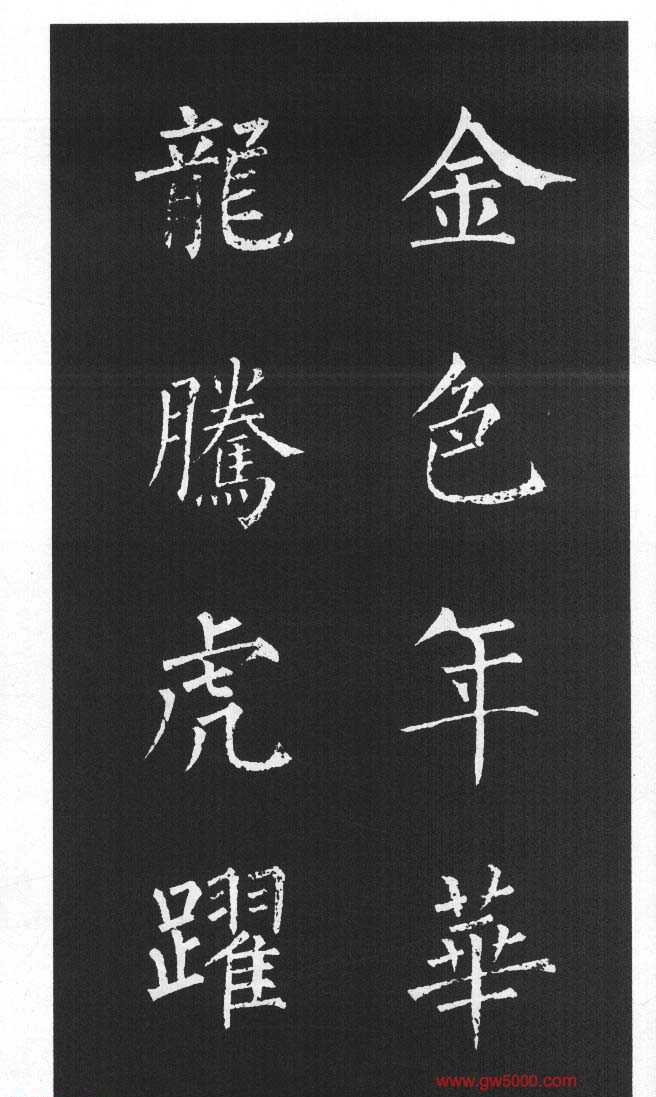 金色年華
龍騰虎躍
www.gw5000.com